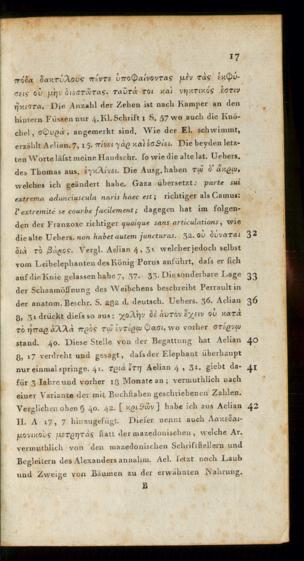 17
πόδα δακτύλους πέντε ὑποφαίνοντας μὲν τὰς ἐκφύ-
σεις οὐ μὴν διεστῶτας. ταῦτά τοι καὶ νηκτικός ἐστιν
ἥκιστα. Die Anzahl der Zehen ist nach Kamper an den
hintern Füssen nur 4. Kl. Schrift 1 S. 57 wo auch die Knö-
chel, σφυρὰ, angemerkt sind. Wie der El. schwimmt,
erzählt Aelian. 7, 15. Die beyden letz-
ten Worte läſst meine Handschr. ſo wie die alte lat. Uebers.
des Thomas aus, ἐγκλίνει. Die Ausg. haben τῷ δ' ἄκρῳ,
welches ich geändert habe. Gaza übersetzt: parte sui
extrema adunciuscula naris haec est; richtiger als Camus:
l'extremité se courbe facilement; dagegen hat im folgen-
den der Franzose richtiger quoique sans articulations, wie
die alte Uebers. non habet autem juncturas. 32. οὐ δύναται 32
διὰ τὸ βάρος. Vergl. Aelian 4, 31 welcher jedoch selbst
vom Leibelephanten des König Porus anführt, daſs er ſich
auf die Knie gelassen habe 7, 37. 33. Die sonderbare Lage 33
der Schaamöffnung des Weibchens beschreibt Perrault in
der anatom. Beschr. S. 282 d. deutsch. Uebers. 36. Aelian 36
8, 31 drückt dieſs so aus: χολὴν δὲ αὐτὸν ἔχειν οὐ κατὰ
τὸ ἧπαρ ἀλλὰ πρὸς τῷ ἐντέρῳ φασι, wo vorher στέρνῳ
stand. 40. Diese Stelle von der Begattung hat Aelian 40
8, 17 verdreht und gesagt, daſs der Elephant überhaupt
nur einmal springe. 41. τρία ἔτη Aelian 4, 31. giebt da- 41
für 3 Jahre und vorher 18 Monate an; vermuthlich nach
einer Variante der mit Buchſtaben geschriebenen Zahlen.
Verglichen oben § 40. 42. [κριθῶν] habe ich aus Aelian 42
H. A 17, 7 hinzugefügt. Dieſer nennt auch Λακεδαι-
μονικοὺς μετρητὰς ſtatt der mazedonischen, welche Ar.
vermuthlich von den mazedonischen Schriftſtellern und
Begleitern des Alexanders annahm. Ael. ſetzt noch Laub
und Zweige von Bäumen zu der erwähnten Nahrung.
B